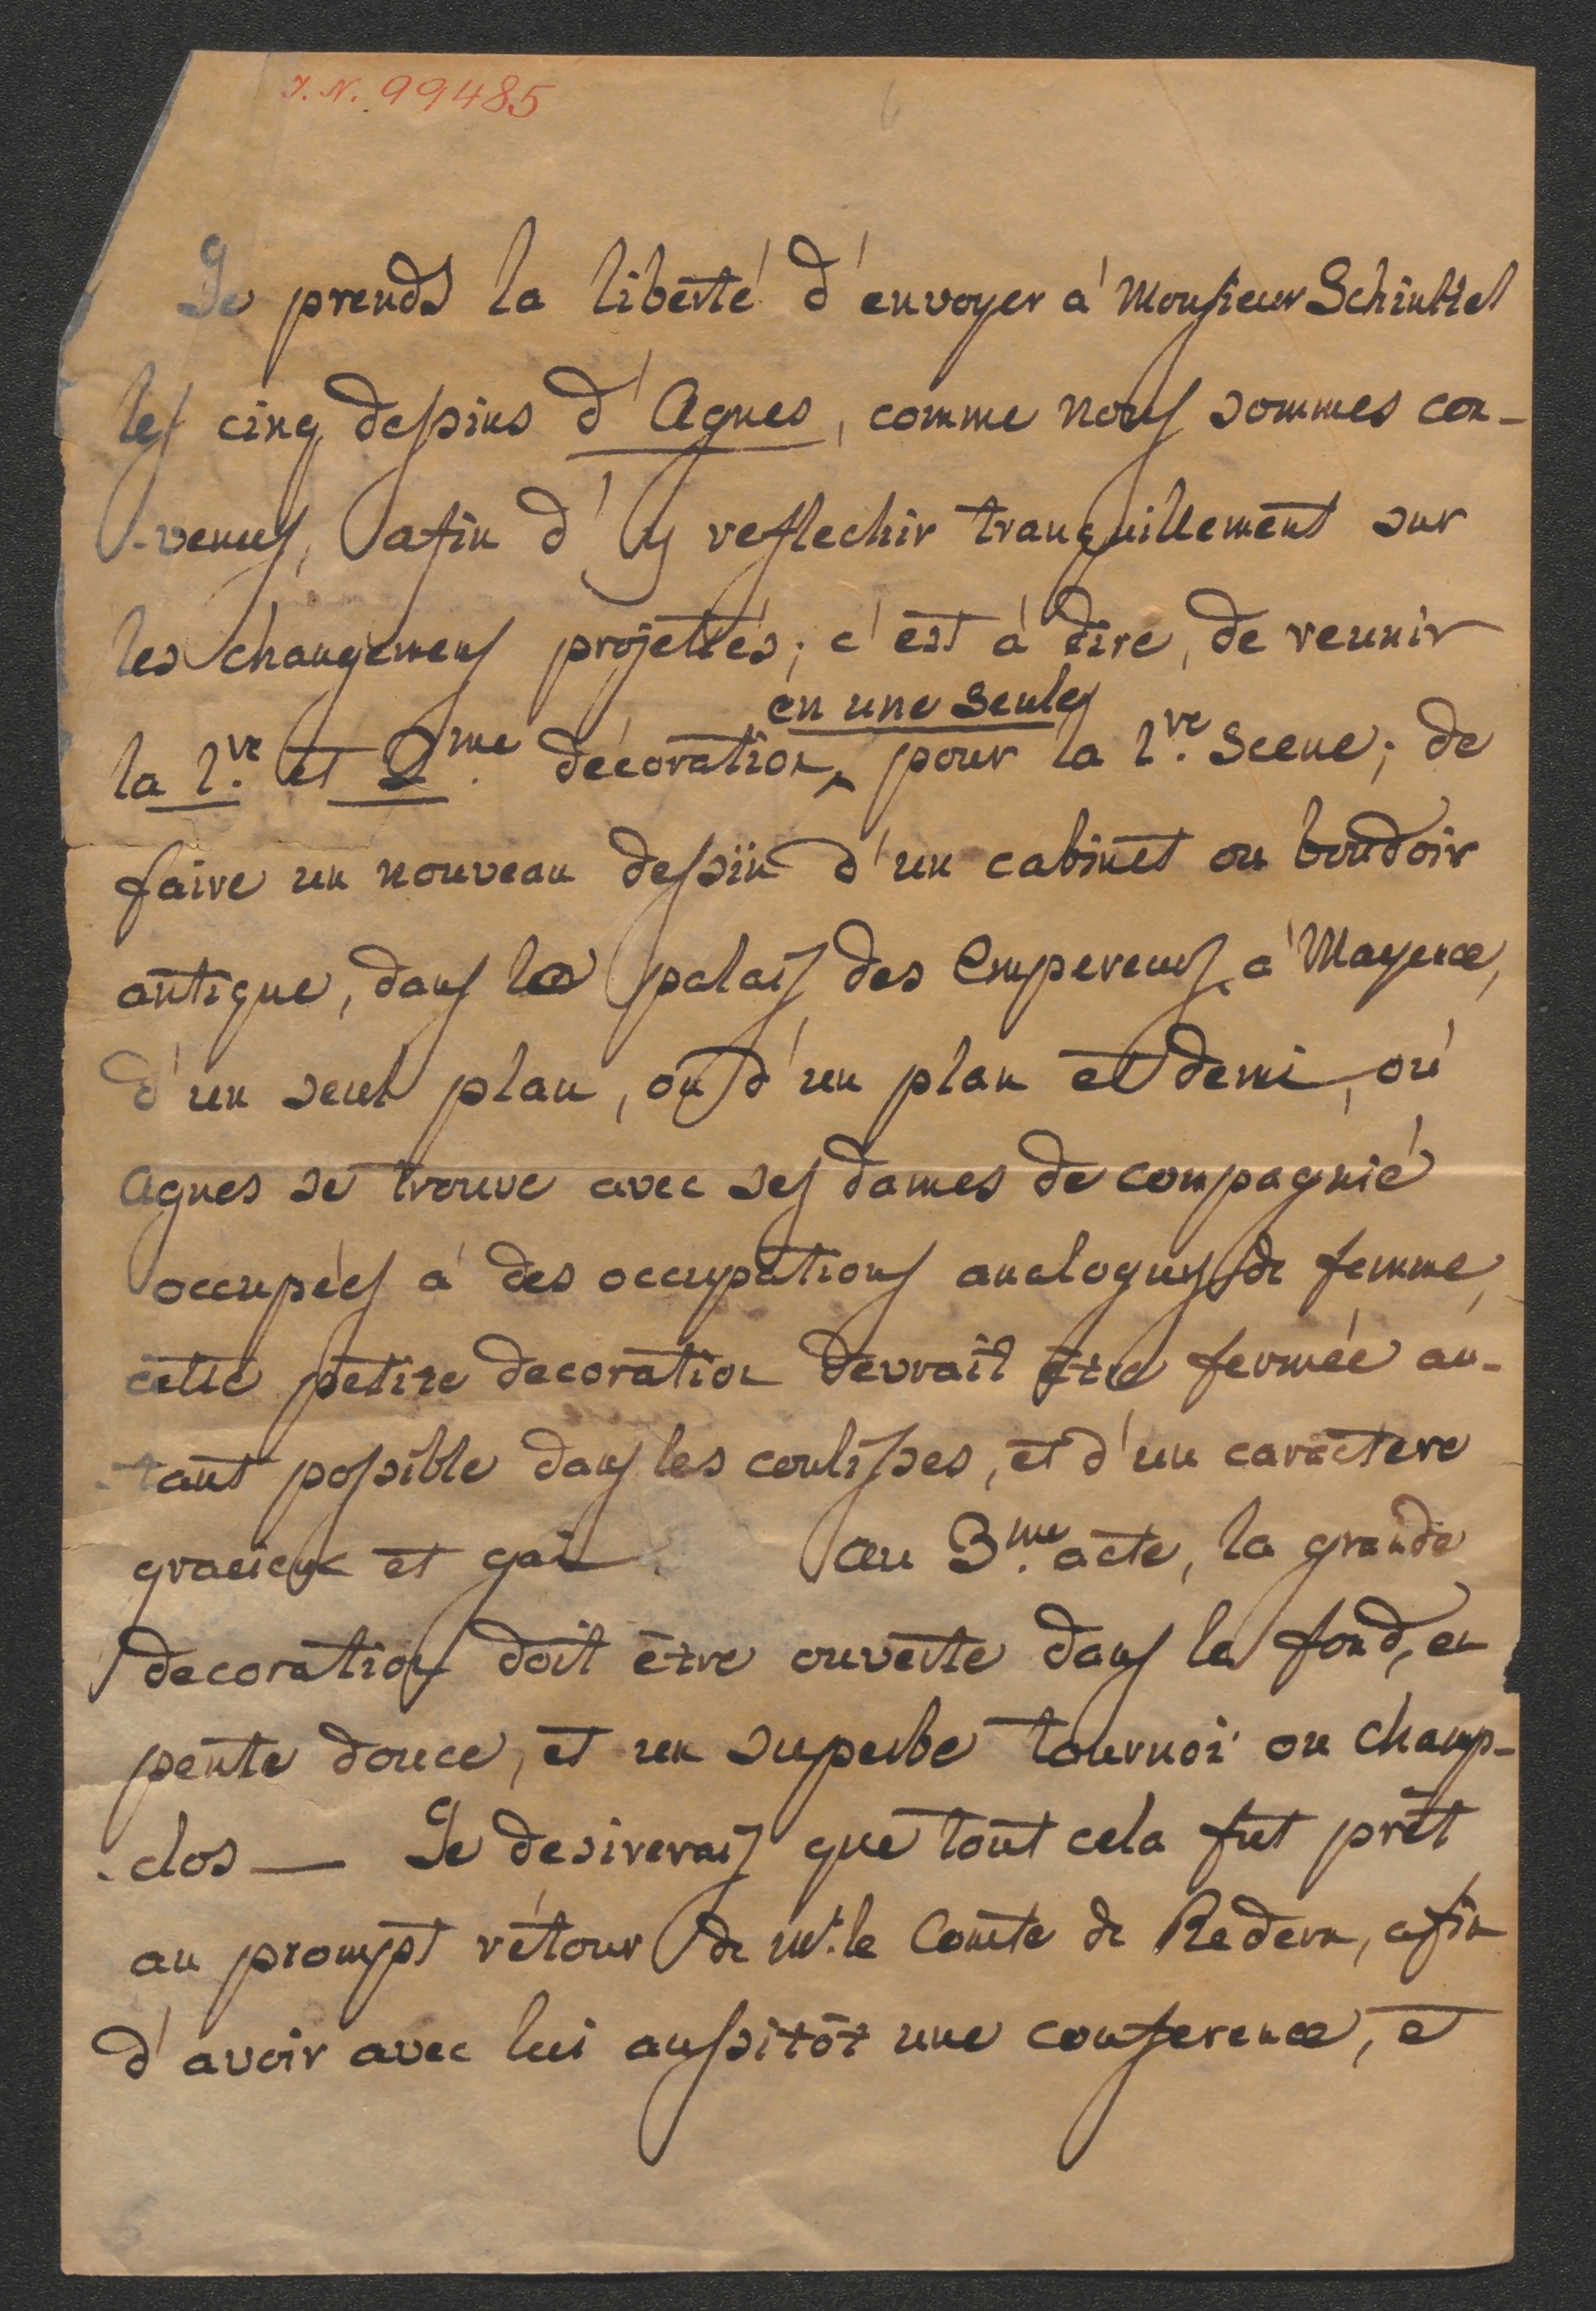 J. N. 99485
Je prends la liberté d'envoyer a' Monsieur Schinkel
les cinq dessins d'Agnes, comme nous sommes con-
-venus, afin d'y reflechir tranquillement sur
les changemens projettés; c'est a' dire, de reunir
en une seule
la 1.re et 2.me décoration, pour la 1.re Scene; de
faire un nouveau dessin d'un cabinet ou boudoir
antique, dans le palais des Empereurs a' Mayence,
d'un seul plan, ou d'un plan et demi, ou'
Agnes se trouve avec ses dames de compagnie
occupées a' des occupations analogues de femme,
cette petite decoration devrait être fermée au-
-tant possible dans les coulisses, et d'un caractere
gracieux et gai. Au 3.me acte, la grande
decoration doit être ouverte dans le fond, en
pente douce, et un superbe tournoi ou champ-
-clos — Je desirerais que tout cela fut prêt
au prompt rétour de Mr. le Comte de Redern, afin
d'avoir avec lui aussitôt une conference, et